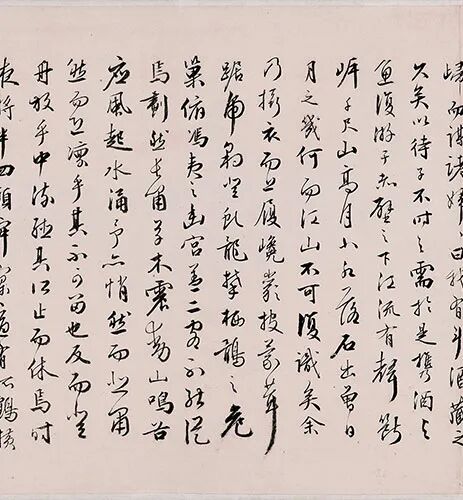 歸而謀諸婦々曰我有斗酒藏之
久矣以待子不時之需於是攜酒与
魚復游于赤壁之下江流有聲斷
岸千尺山高月小水落石出曾日
月之幾何而江山不可復識矣余
乃攝衣而上履巉巖披蒙茸
踞虎豹登虬龍攀栖鶻之危
巢俯馮夷之幽宮蓋二客不能從
焉劃然長嘯草木震動山鳴谷
應風起水涌予亦悄然而悲肅
然而恐凜乎其不可留也反而登
舟放乎中流聽其所止而休焉時
夜將半四顧寂寥適有孤鶴橫